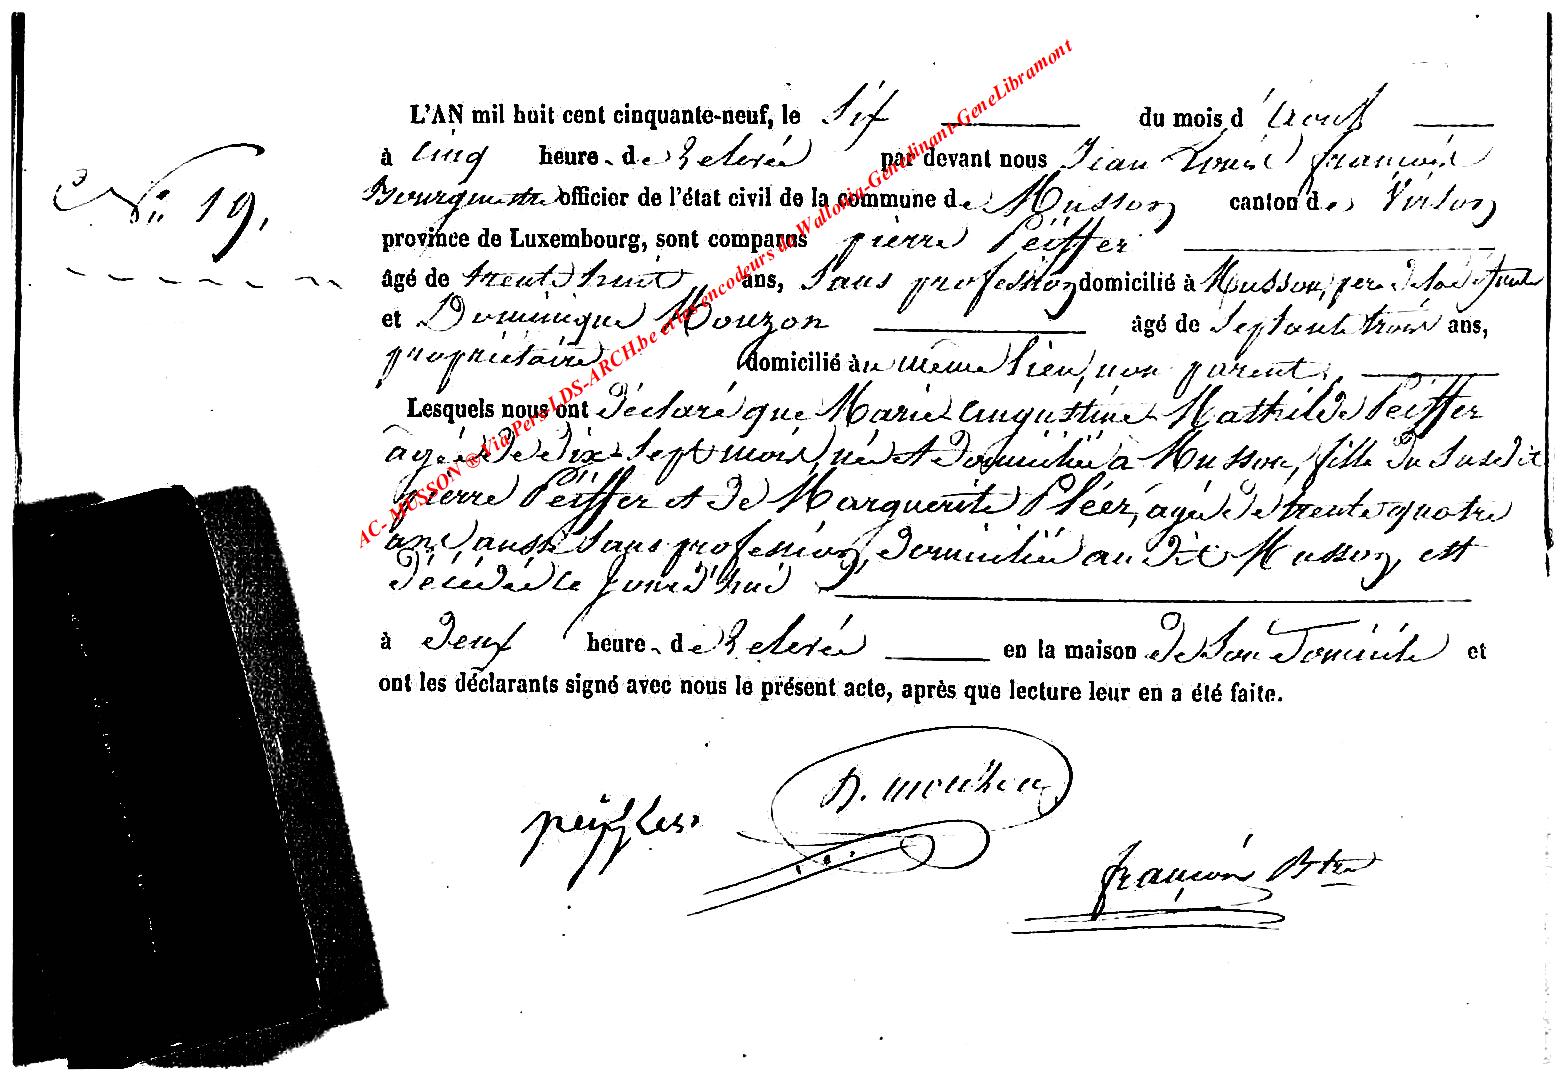 L'AN mil huit cent cinquante-neuf, le Six du mois d'Aout
à cinq heure de relevée par devant nous Jean Louis françois
Bourguestre officier de l'état civil de la commune de Musson canton de Virton
N° 19.
province de Luxembourg, sont comparus pierre Péiffer
âgé de trente huit ans, Sans profession domicilié à Musson, pere de la défunte
et Dominique Mouzon âgé de Septante trois ans,
propriétaire domicilié au même lieu, non parent,
Lesquels nous ont Déclaré que Marie Augustine Mathilde Péiffer
agée de dix Sept mois, née et domiciliée à Musson, fille du Susdit
pierre Péiffer et de Marguerite agée de trente quatre
ans, aussi Sans profession, domiciliée au dit Musson, est
décédée ce jourd'hui
à deux heure de relevée en la maison de Son domicile et
ont les déclarants signé avec nous le présent acte, après que lecture leur en a été faite.
peiffer D. mouzon
françois Btre
AC- MUSSON ® Via Pers LDS-ARCH.be et les encodeurs de Wallonia-Genedinant-GeneLibramont